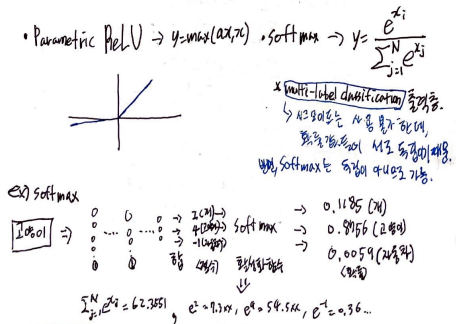 • Parametric ReLU → y=max(ax,x) • softmax → y= e^{x_i} / Σ_{j=1}^{N} e^{x_j}
* multi-label classification 출력층
↳ 시그모이드는 사용 불가한데,
확률값들이 서로 독립이기 때문.
반면, softmax는 독립이 아니므로 가능.
ex) softmax
Image ⇒ → 2 (개) → softmax → 0.1185 (개)
→ 4 (고양이) → 0.8756 (고양이)
→ -1 (자동차) → 0.0059 (자동차)
합 활성화함수 (확률)
⇓
Σ_{j=1}^{N} e^{x_j} = 62.3551, e^2=7.3xx, e^4=54.5xx, e^{-1}=0.36...